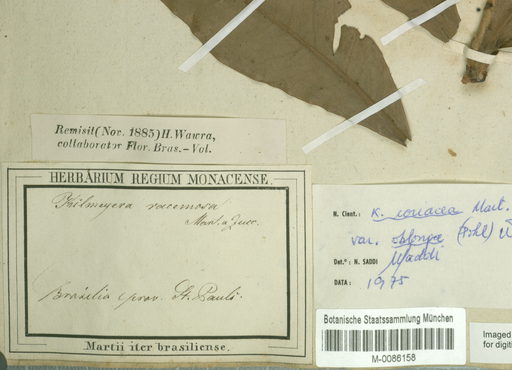 Remisit (Nov. 1885) H. Wawra,
collaborator Flor. Bras. – Vol.
HERBARIUM REGIUM MONACENSE.
Kilmeyera racemosa
Mart. a Zucc.
Brasilia prov. St. Pauli.
Martii iter brasiliense.
N. Cient.: K. coriacea Mart.
var. oblonga (Pohl)
Det.º: N. SADDI Saddi
DATA: 1975
Botanische Staatssammlung München
M-0086158
Imaged
for digiti